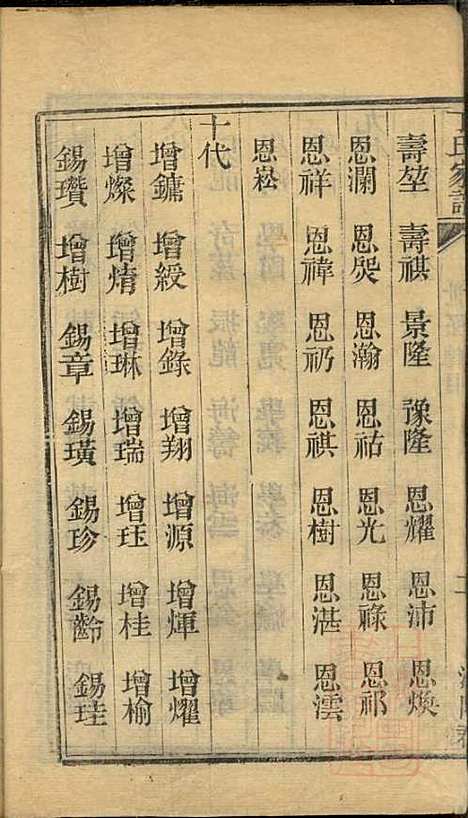 氏家譜
壽堃 壽祺 景隆 豫隆 恩耀 恩沛 恩煥
恩瀾 恩煛 恩瀚 恩祜 恩光 恩祿 恩祁
恩祥 恩禕 恩礽 恩祺 恩樹 恩湛 恩澐
恩崧
十代
增鏞 增綬 增錄 增翔 增源 增煇 增耀
增燦 增焴 增琳 增瑞 增珏 增桂 增榆
錫瓚 增樹 錫章 錫璜 錫珍 錫齡 錫珪